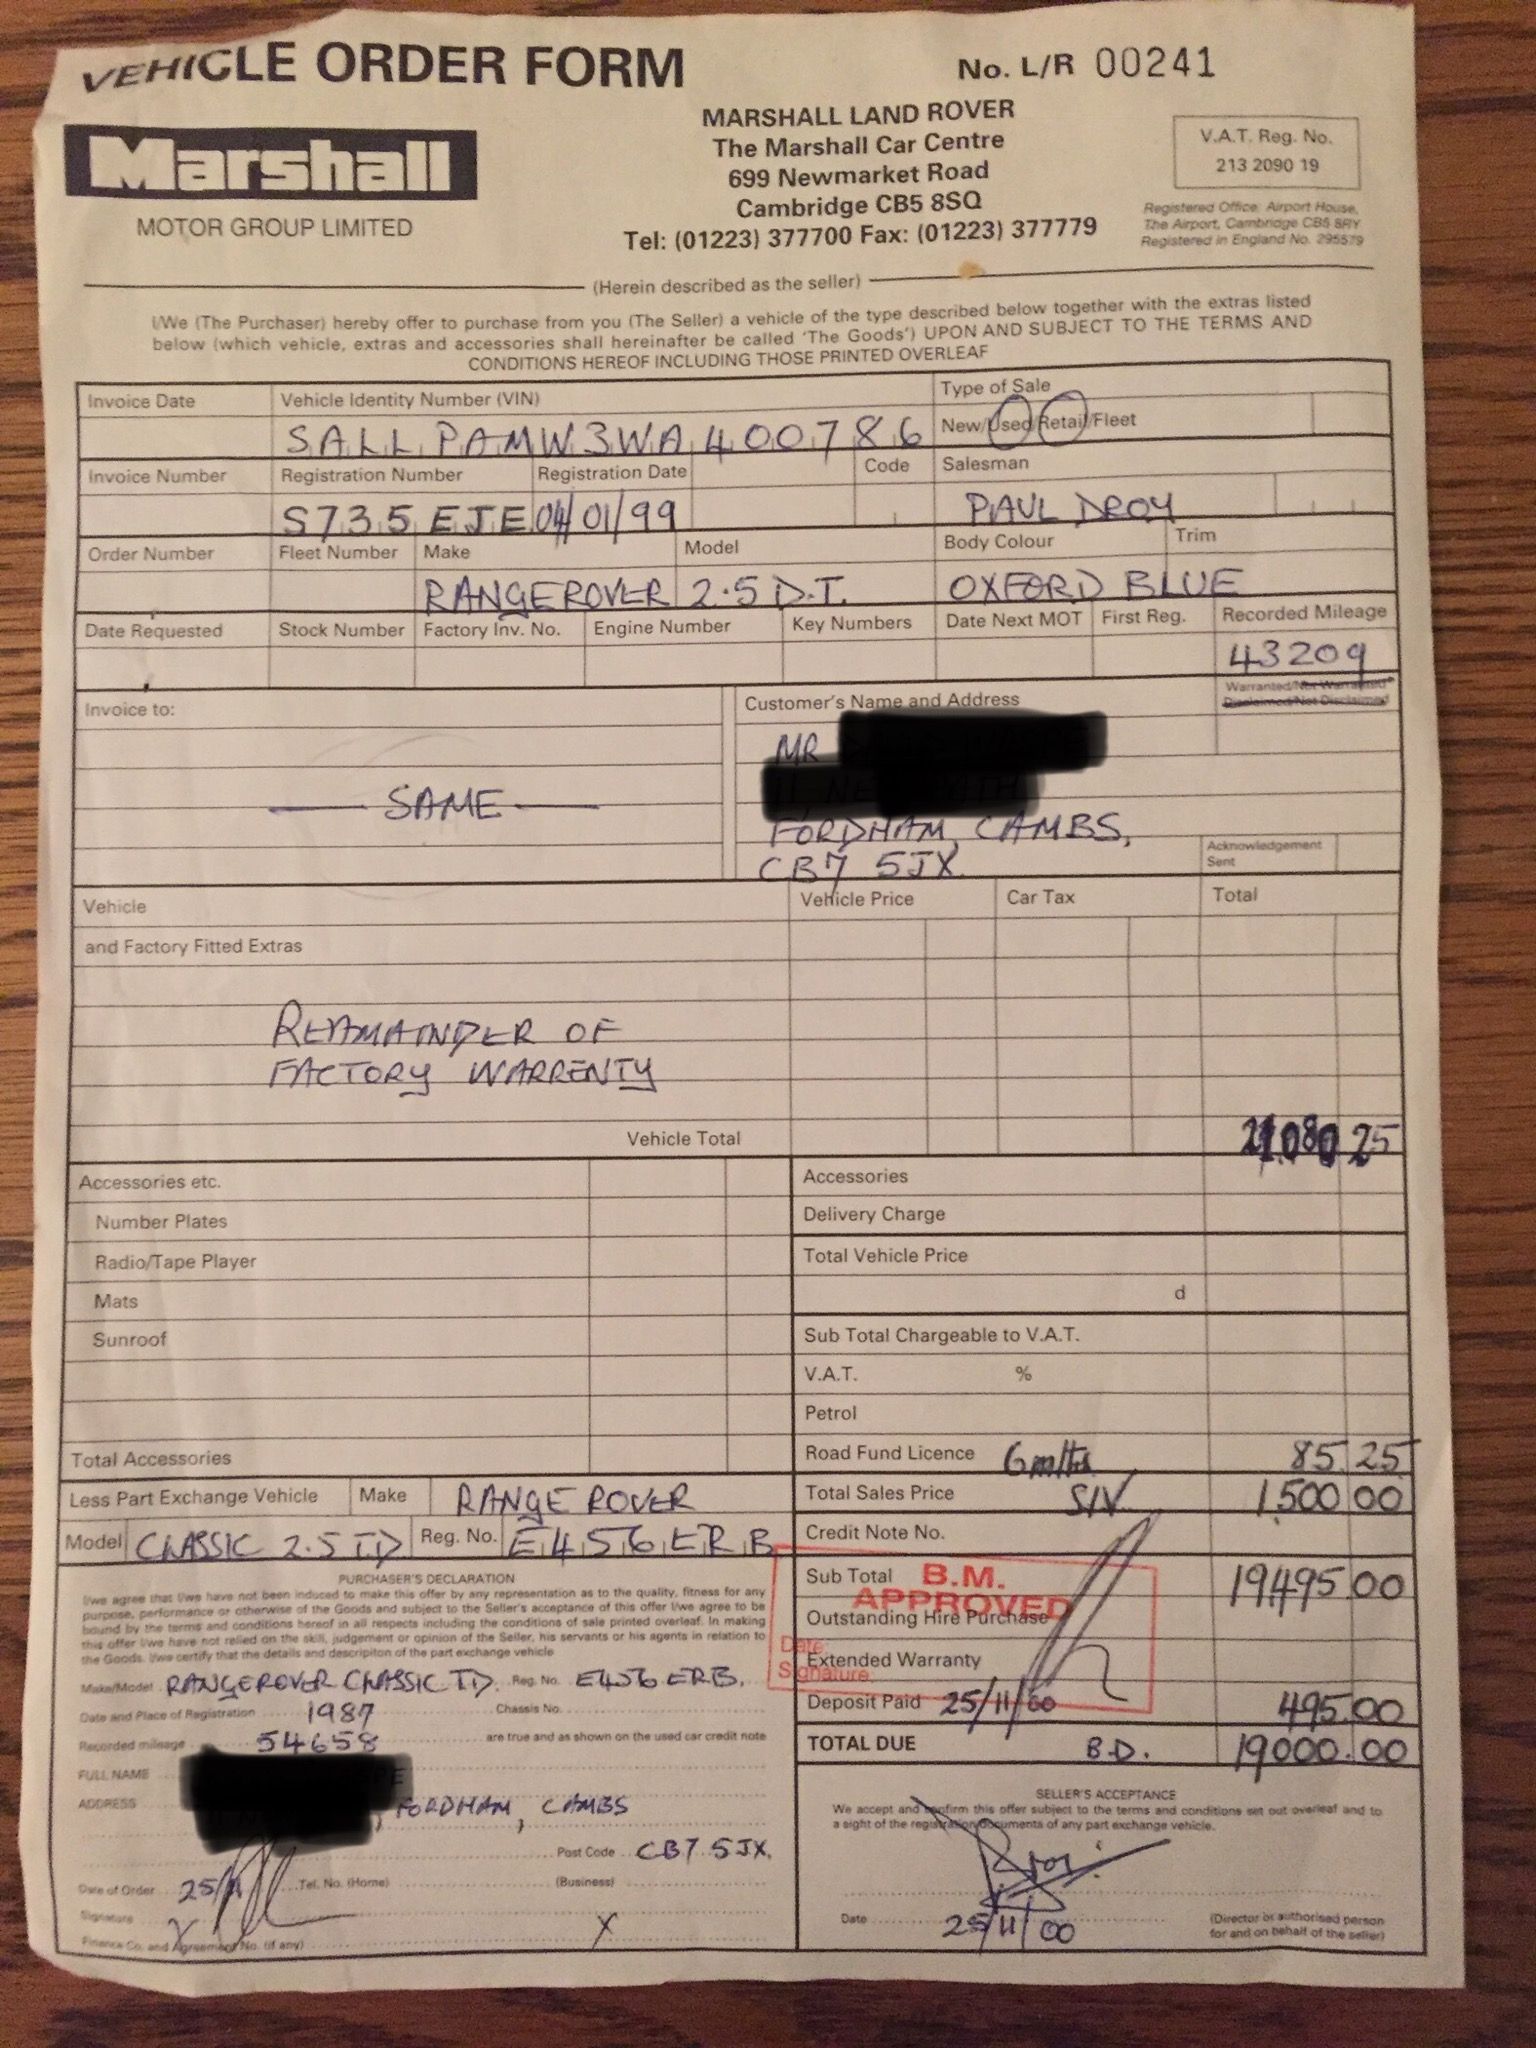 VEHICLE ORDER FORM
No. L/R 00241
Marshall
MOTOR GROUP LIMITED
MARSHALL LAND ROVER
The Marshall Car Centre
699 Newmarket Road
Cambridge CB5 8SQ
Tel: (01223) 377700 Fax: (01223) 377779
V.A.T. Reg. No.
213 2090 19
Registered Office: Airport House,
The Airport, Cambridge CB5 8RY
Registered in England No. 295579
(Herein described as the seller)
I/We (The Purchaser) hereby offer to purchase from you (The Seller) a vehicle of the type described below together with the extras listed
below (which vehicle, extras and accessories shall hereinafter be called 'The Goods') UPON AND SUBJECT TO THE TERMS AND
CONDITIONS HEREOF INCLUDING THOSE PRINTED OVERLEAF
Invoice Date
Vehicle Identity Number (VIN)
Type of Sale
SALLPAMW3WA400786
New/Used/Retail/Fleet
Invoice Number
Registration Number
Registration Date
Code
Salesman
S735 EJE 04/01/99
PAUL DROY
Order Number
Fleet Number
Make
Model
Body Colour
Trim
RANGEROVER 2.5 D.T. OXFORD BLUE
Date Requested
Stock Number
Factory Inv. No.
Engine Number
Key Numbers
Date Next MOT
First Reg.
Recorded Mileage
43209
Warranted/Not Warranted
Disclaimed/Not Disclaimed
Invoice to:
Customer's Name and Address
MR
SAME
FORDHAM, CAMBS,
CB7 5JX.
Acknowledgement
Sent
Vehicle
Vehicle Price
Car Tax
Total
and Factory Fitted Extras
REAMAINDER OF
FACTORY WARRENTY
Vehicle Total
25
Accessories etc.
Accessories
Number Plates
Delivery Charge
Radio/Tape Player
Total Vehicle Price
Mats
d
Sunroof
Sub Total Chargeable to V.A.T.
V.A.T. %
Petrol
Total Accessories
Road Fund Licence 6 mths 85.25
Less Part Exchange Vehicle Make RANGE ROVER
Total Sales Price S/V 1,500.00
Model CLASSIC 2.5 TD Reg. No. E456 ERB
Credit Note No.
PURCHASER'S DECLARATION
I/we agree that I/we have not been induced to make this offer by any representation as to the quality, fitness for any
purpose, performance or otherwise of the Goods and subject to the Seller's acceptance of this offer I/we agree to be
bound by the terms and conditions hereof in all respects including the conditions of sale printed overleaf. In making
this offer I/we have not relied on the skill, judgement or opinion of the Seller, his servants or his agents in relation to
the Goods. I/we certify that the details and descripiton of the part exchange vehicle
Make/Model RANGEROVER CLASSIC TD. Reg. No. E456 ERB.
Date and Place of Registration 1987 Chassis No.
Recorded mileage 54658 are true and as shown on the used car credit note
FULL NAME
ADDRESS , FORDHAM, CAMBS
Post Code CB7 5JX.
Date of Order 25/11 Tel. No. (Home) (Business)
Signature X X
Finance Co. and Agreement No. (if any)
Sub Total 19,495.00
B.M.
APPROVED
Date:
Signature:
Outstanding Hire Purchase
Extended Warranty
Deposit Paid 25/11/00 495.00
TOTAL DUE B.D. 19000.00
SELLER'S ACCEPTANCE
We accept and confirm this offer subject to the terms and conditions set out overleaf and to
a sight of the registration documents of any part exchange vehicle.
Date 25/11/00
(Director or authorised person
for and on behalf of the seller)